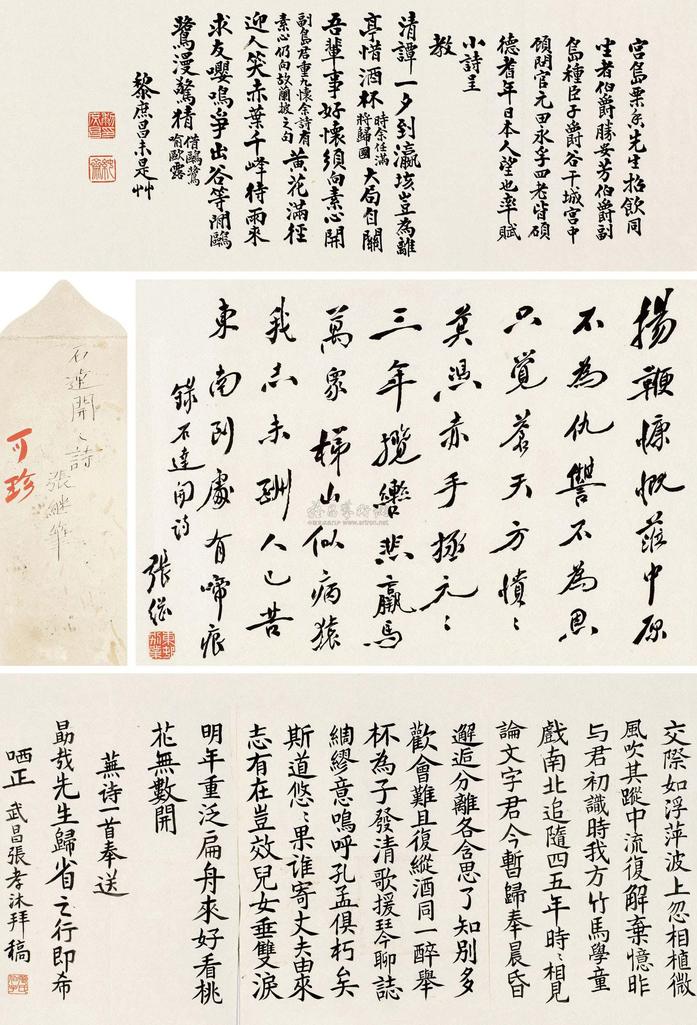 宮島栗香先生招飲同
坐者伯爵勝安芳伯爵副
島種臣子爵谷干城宮中
顧問官元田永孚四老皆碩
德耆年日本人望也率賦
小詩呈
教
清譚一夕到瀛垓豈為離
亭惜酒杯時余任滿將歸國大局自關
吾輩事好懷須向素心開
副島君重九懷余詩有素心仍向故蘭坡之句黃花滿徑
迎人笑赤葉千峰待雨來
求友嚶鳴爭出谷等閒鷗
鷺漫驚猜借鷗鷺喻歐露
黎庶昌未是艸
石達開之詩
張繼筆
可珍
揚鞭慷慨蒞中原
不為仇讐不為恩
只覺蒼天方憒〻
莫憑赤手拯元〻
三年攬轡悲羸馬
萬眾梯山似病猿
我志未酬人已苦
東南到處有啼痕
錄石達開詩
張繼
交際如浮萍波上忽相植微
風吹其蹤中流復解棄憶昨
与君初識時我方竹馬學童
戲南北追隨四五年時〻相見
論文字君今暫歸奉晨昏
邂逅分離各含思了知別多
歡會難且復縱酒同一醉舉
杯為子發清歌援琴聊誌
綢繆意嗚呼孔孟俱朽矣
斯道悠〻果誰寄丈夫由來
志有在豈效兒女垂雙淚
明年重泛扁舟來好看桃
花無數開
蕪诗一首奉送
勗哉先生歸省之行即希
哂正 武昌張孝沐拜稿